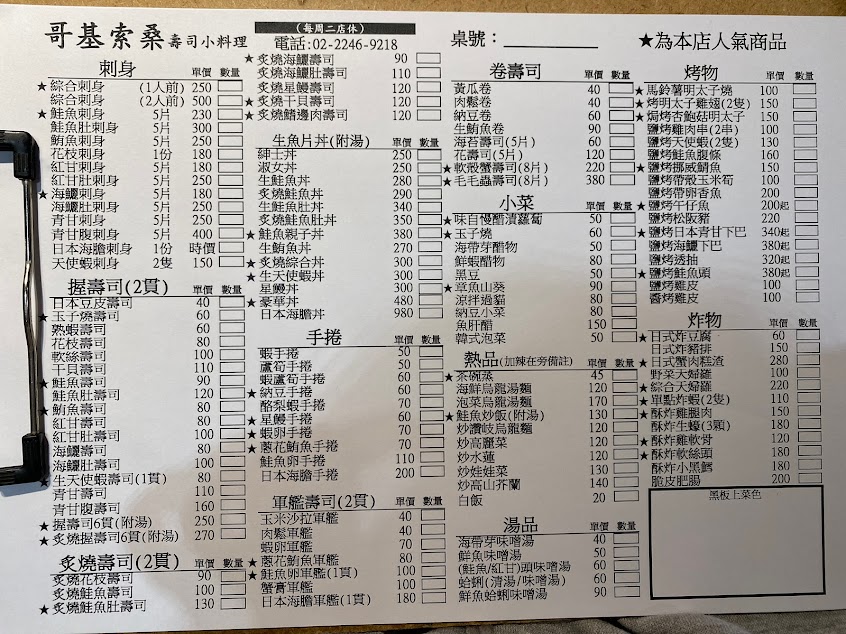 哥基索桑 壽司小料理
(每周二店休)
電話:02-2246-9218
桌號：
★為本店人氣商品
刺身 單價 數量
★綜合刺身 (1人前) 250
綜合刺身 (2人前) 500
★鮭魚刺身 5片 230
鮭魚肚刺身 5片 300
鮪魚刺身 5片 250
花枝刺身 1份 180
紅甘刺身 5片 180
紅甘肚刺身 5片 250
★海鱺刺身 5片 180
海鱺肚刺身 5片 250
青甘刺身 5片 250
青甘腹刺身 5片 400
日本海膽刺身 1份 時價
天使蝦刺身 2隻 150
握壽司(2貫) 單價 數量
日本豆皮壽司 40
★玉子燒壽司 60
熟蝦壽司 60
花枝壽司 80
軟絲壽司 100
干貝壽司 110
★鮭魚壽司 90
鮭魚肚壽司 120
★鮪魚壽司 80
紅甘壽司 80
紅甘肚壽司 100
海鱺壽司 80
海鱺肚壽司 100
★生天使蝦壽司(1貫) 80
青甘壽司 110
青甘腹壽司 160
★握壽司6貫(附湯) 250
★炙燒壽司6貫(附湯) 270
炙燒壽司(2貫) 單價 數量
炙燒花枝壽司 90
炙燒鮭魚壽司 100
★炙燒鮭魚肚壽司 130
★炙燒海鱺壽司 90
炙燒海鱺肚壽司 110
炙燒星鰻壽司 120
★炙燒干貝壽司 120
★炙燒鰭邊肉壽司 120
生魚片丼(附湯) 單價 數量
紳士丼 250
淑女丼 250
生鮭魚丼 280
炙燒鮭魚丼 290
生鮭魚肚丼 340
炙燒鮭魚肚丼 350
★鮭魚親子丼 340
生鮪魚丼 270
★炙燒綜合丼 300
★生天使蝦丼 320
星鰻丼 300
★豪華丼 480
日本海膽丼 980
手捲 單價 數量
蝦手捲 50
蘆筍手捲 50
蝦蘆筍手捲 60
★納豆手捲 60
酪梨蝦手捲 70
★星鰻手捲 60
★蝦卵手捲 70
★蔥花鮪魚手捲 70
鮭魚卵手捲 110
日本海膽手捲 200
軍艦壽司(2貫) 單價 數量
玉米沙拉軍艦 40
肉鬆軍艦 40
蝦卵軍艦 70
★蔥花鮪魚軍艦 80
★鮭魚卵軍艦(1貫) 100
蟹膏軍艦 100
日本海膽軍艦(1貫) 180
卷壽司 單價 數量
黃瓜卷 40
肉鬆卷 40
納豆卷 60
生鮪魚卷 90
海苔壽司(5片) 100
花壽司(5片) 120
★軟殼蟹壽司(8片) 220
★毛毛蟲壽司(8片) 380
小菜 單價 數量
★味自慢醋漬蘿蔔 50
★玉子燒 60
海帶芽醋物 50
鮮蝦醋物 80
黑豆 50
★章魚山葵 90
涼拌過貓 80
納豆小菜 80
魚肝醋 150
韓式泡菜 50
熱品(加辣在旁備註) 單價 數量
★茶碗蒸 45
海鮮烏龍湯麵 120
泡菜烏龍湯麵 170
★鮭魚炒飯(附湯) 130
炒讚岐烏龍麵 120
炒高麗菜 110
炒水蓮 120
炒娃娃菜 130
炒高山芥蘭 140
白飯 20
湯品 單價 數量
海帶芽味噌湯 40
鮮魚味噌湯 50
(鮭魚/紅甘)頭味噌湯 60
蛤蜊(清湯/味噌湯) 60
鮮魚蛤蜊味噌湯 90
烤物 單價 數量
★馬鈴薯明太子燒 100
★烤明太子雞翅(2隻) 150
★焗烤杏鮑菇明太子 150
鹽烤雞肉串(2串) 100
鹽烤天使蝦(2隻) 130
鹽烤鮭魚腹條 160
★鹽烤挪威鯖魚 150
鹽烤帶殼玉米筍 100
鹽烤帶卵香魚 200
★鹽烤午仔魚 200起
鹽烤松阪豬 220
★鹽烤日本青甘下巴 340起
鹽烤海鱺下巴 380起
鹽烤透抽 320起
★鹽烤鮭魚頭 380起
鹽烤雞皮 100
醬烤雞皮 100
炸物 單價 數量
★日式炸豆腐 60
日式炸豬排 150
★日式蟹肉糕渣 280
野菜天婦羅 100
★綜合天婦羅 220
★單點炸蝦(2隻) 110
★酥炸雞腿肉 150
酥炸生蠔(3顆) 180
★酥炸雞軟骨 120
★酥炸軟絲頭 180
酥炸小黑鱈 180
脆皮肥腸 200
黑板上菜色